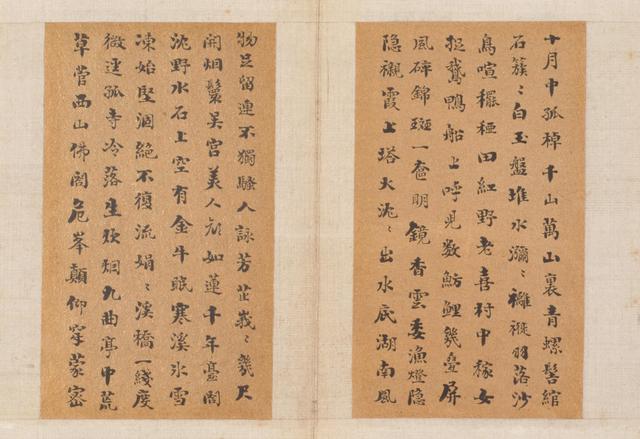 十月中孤棹千山萬山裏青螺髻綰
石簇〻白玉盤堆水瀰〻襳褷羽落沙
鳥喧穲稏田紅野老喜村中稼女
捉鵞鴨船上呼児数魴鯉幾疊屏
風碎錦斑一奩明鏡香雲委漁燈隐
隐襯霞上塔火洮〻出水底湖南風
物足留連不獨騷人詠芳芷峩〻幾尺
開烟鬟吴宫美人顔如蓮千年臺閣
沈野水石上空有金牛眠寒溪氷雪
凍始堅涸絶不復流娟〻溪橋一綫度
微逕孤寺冷落生炊烟九曲亭中荒
草菅西山佛閣危峯顛仰穿蒙密